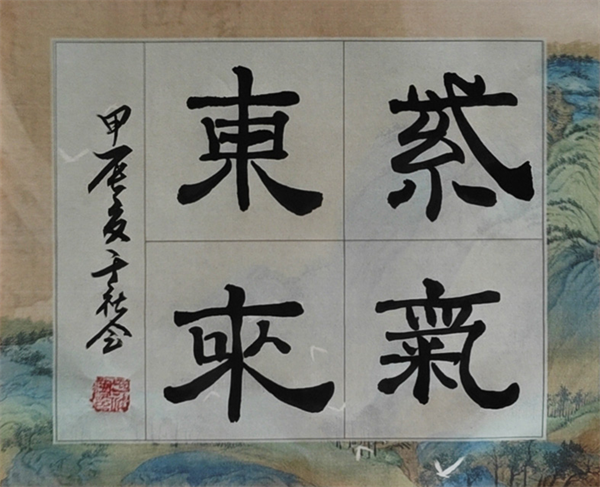 紫氣
東來
甲辰夏于